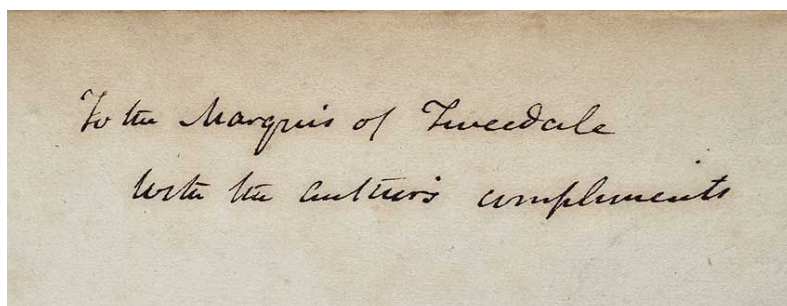 To the Marquis of Tweedale
With the Author's compliments